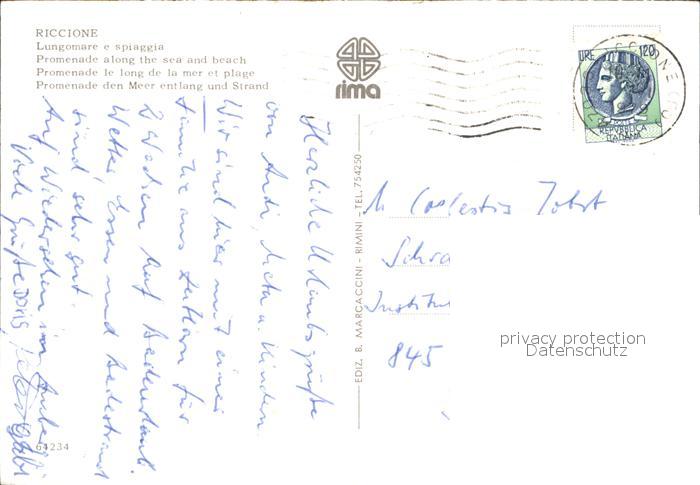 RICCIONE
Lungomare e spiaggia
Promenade along the sea and beach
Promenade le long de la mer et plage
Promenade den Meer entlang und Strand
rima
LIRE 120
REPVBBLICA
ITALIANA
RICCIONE
EDIZ. B. MARCACCINI - RIMINI - TEL. 754250
64234
Herzliche Urlaubsgrüße
von Andi, Meta u. Kinder.
Wir sind hier mit einer
Familie aus für
2 Wochen auf Badeurlaub.
Wetter, Essen und Badestrand
sind sehr gut.
Auf Wiedersehen im
Viele Grüße
M. Coelestis Jobst
Schra
Institut
845
privacy protection
Datenschutz